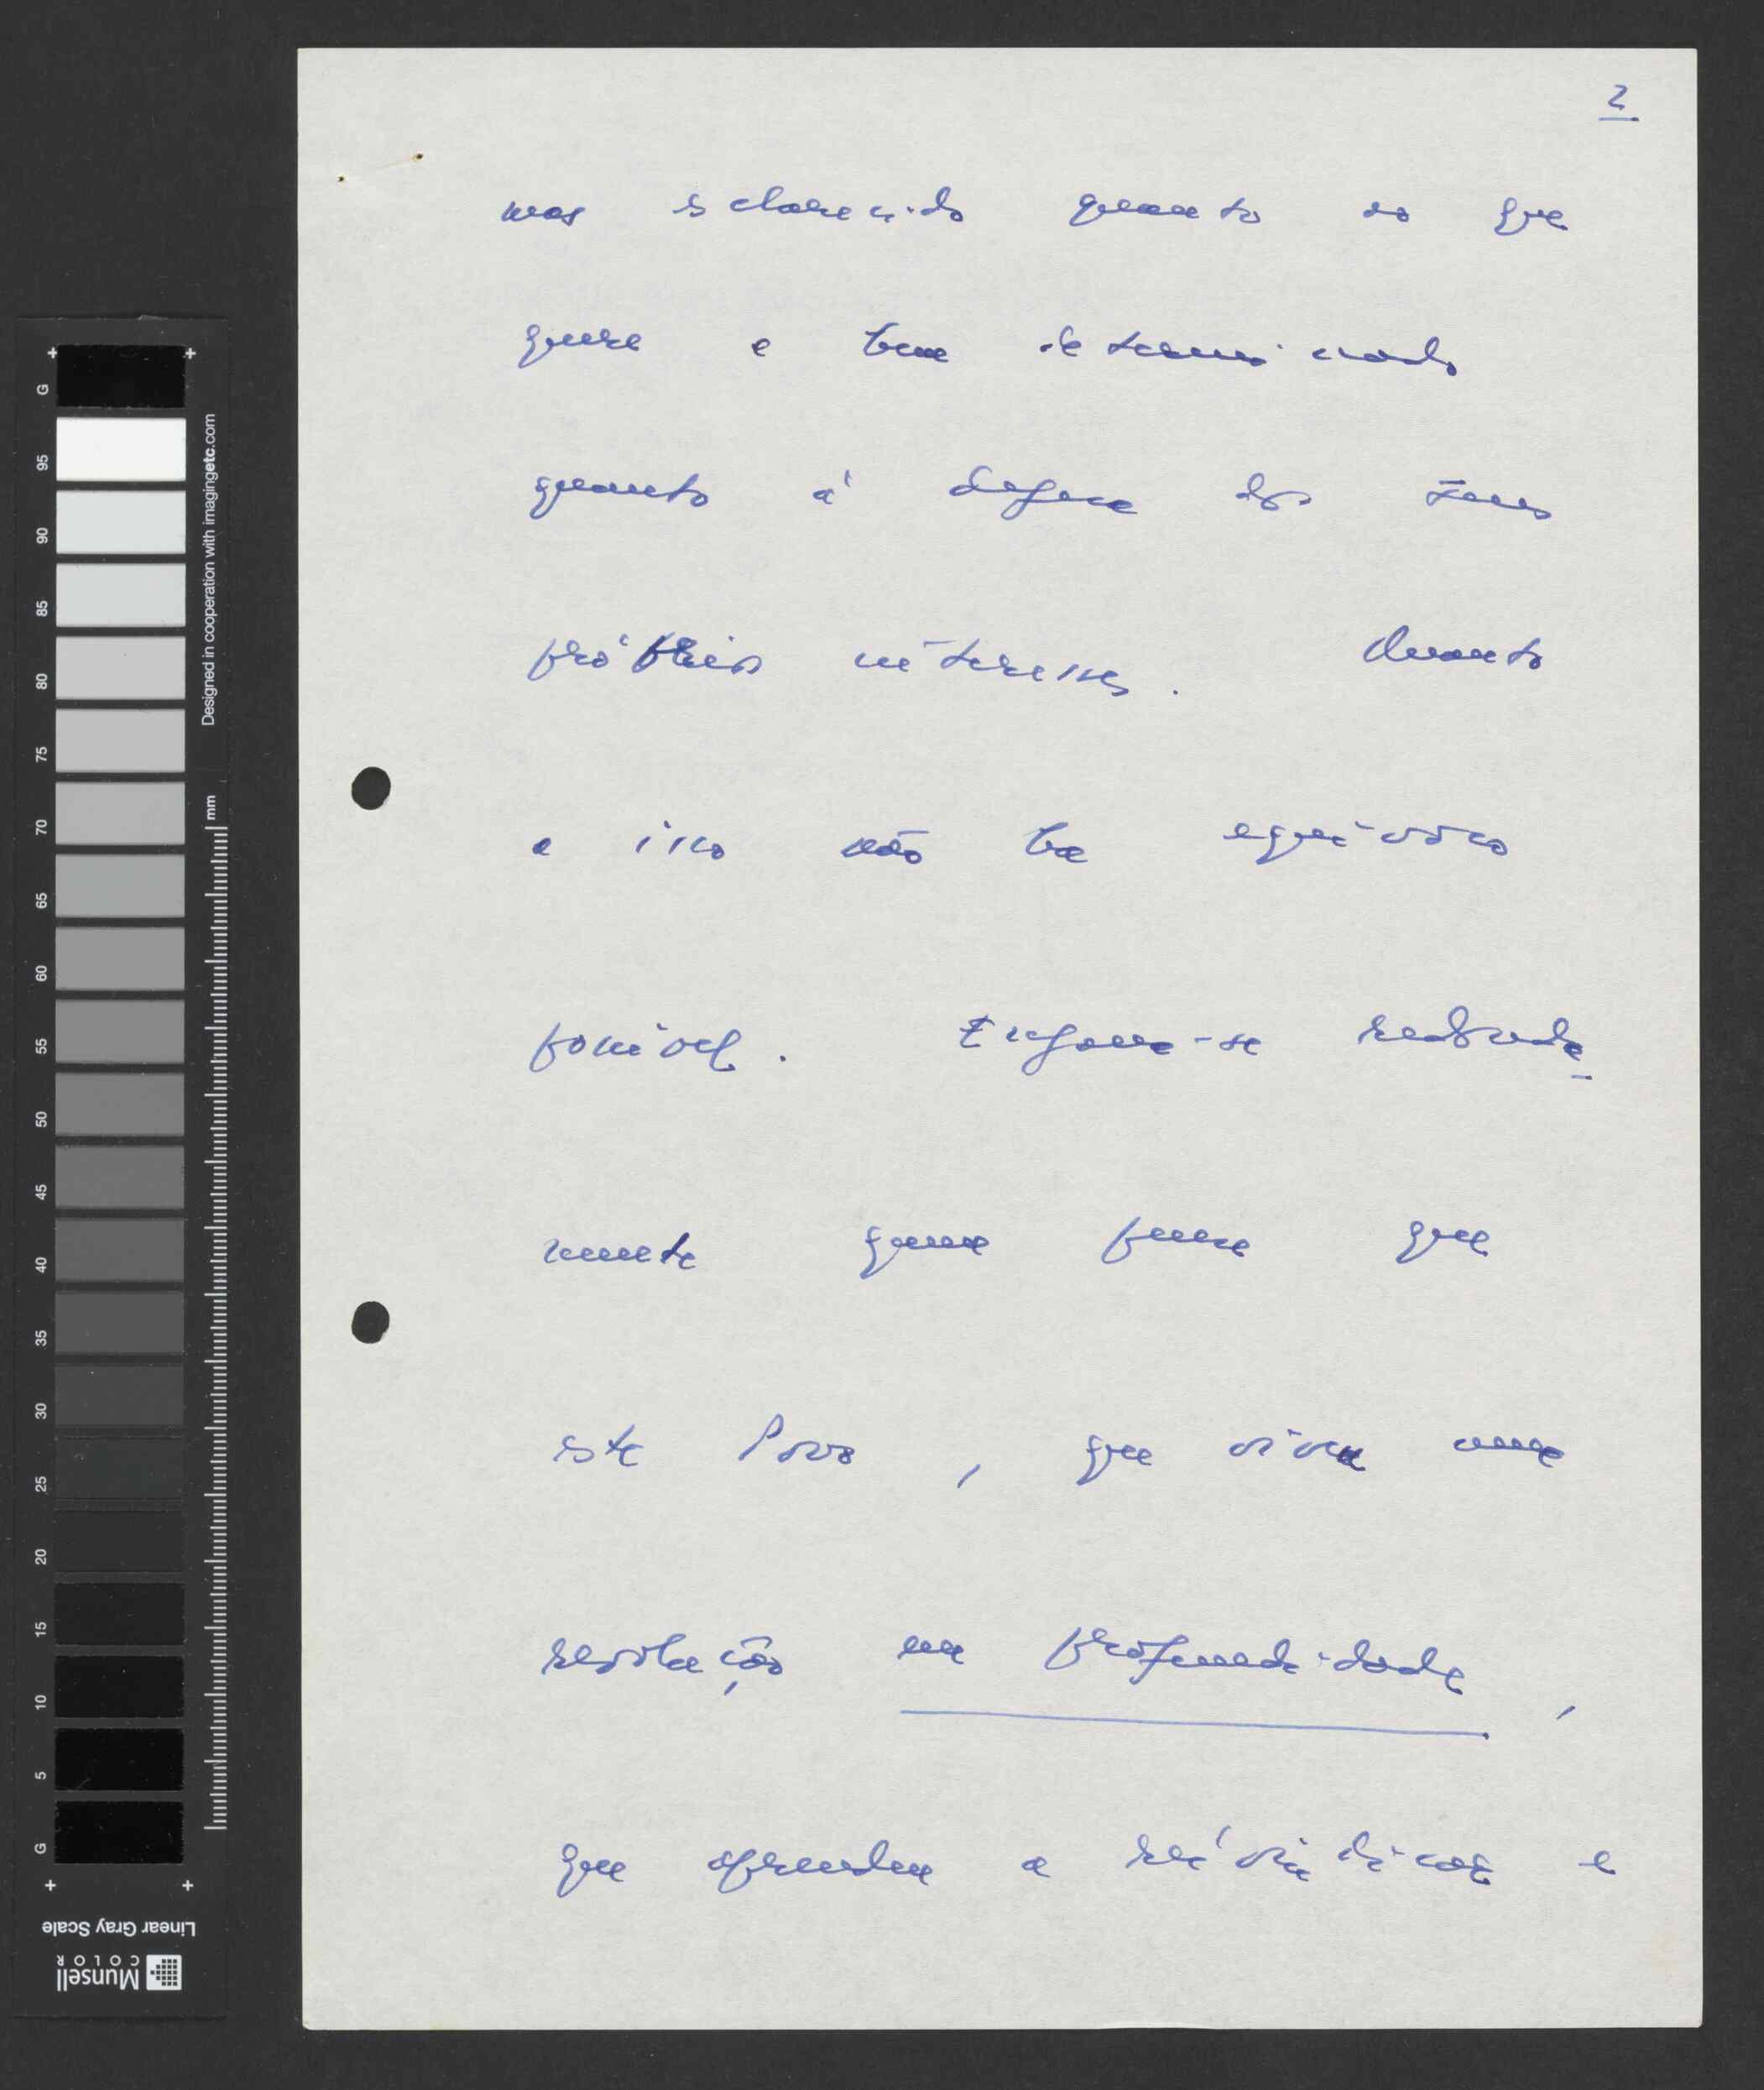 2
mas esclarecido quanto ao que
quere e bem determinado
quanto à defesa dos seus
próprios interesses. Quanto
a isso não há equívoco
possível. Engana-se redonda-
mente quem pense que
este Povo, que viveu uma
revolução em profundidade,
que aprendeu a reivindicar e
G
95
90
85
80
75
70
65
60
55
50
45
40
35
30
25
20
15
10
5
G
mm
Designed in cooperation with imagingetc.com
Linear Gray Scale
Munsell
COLOR